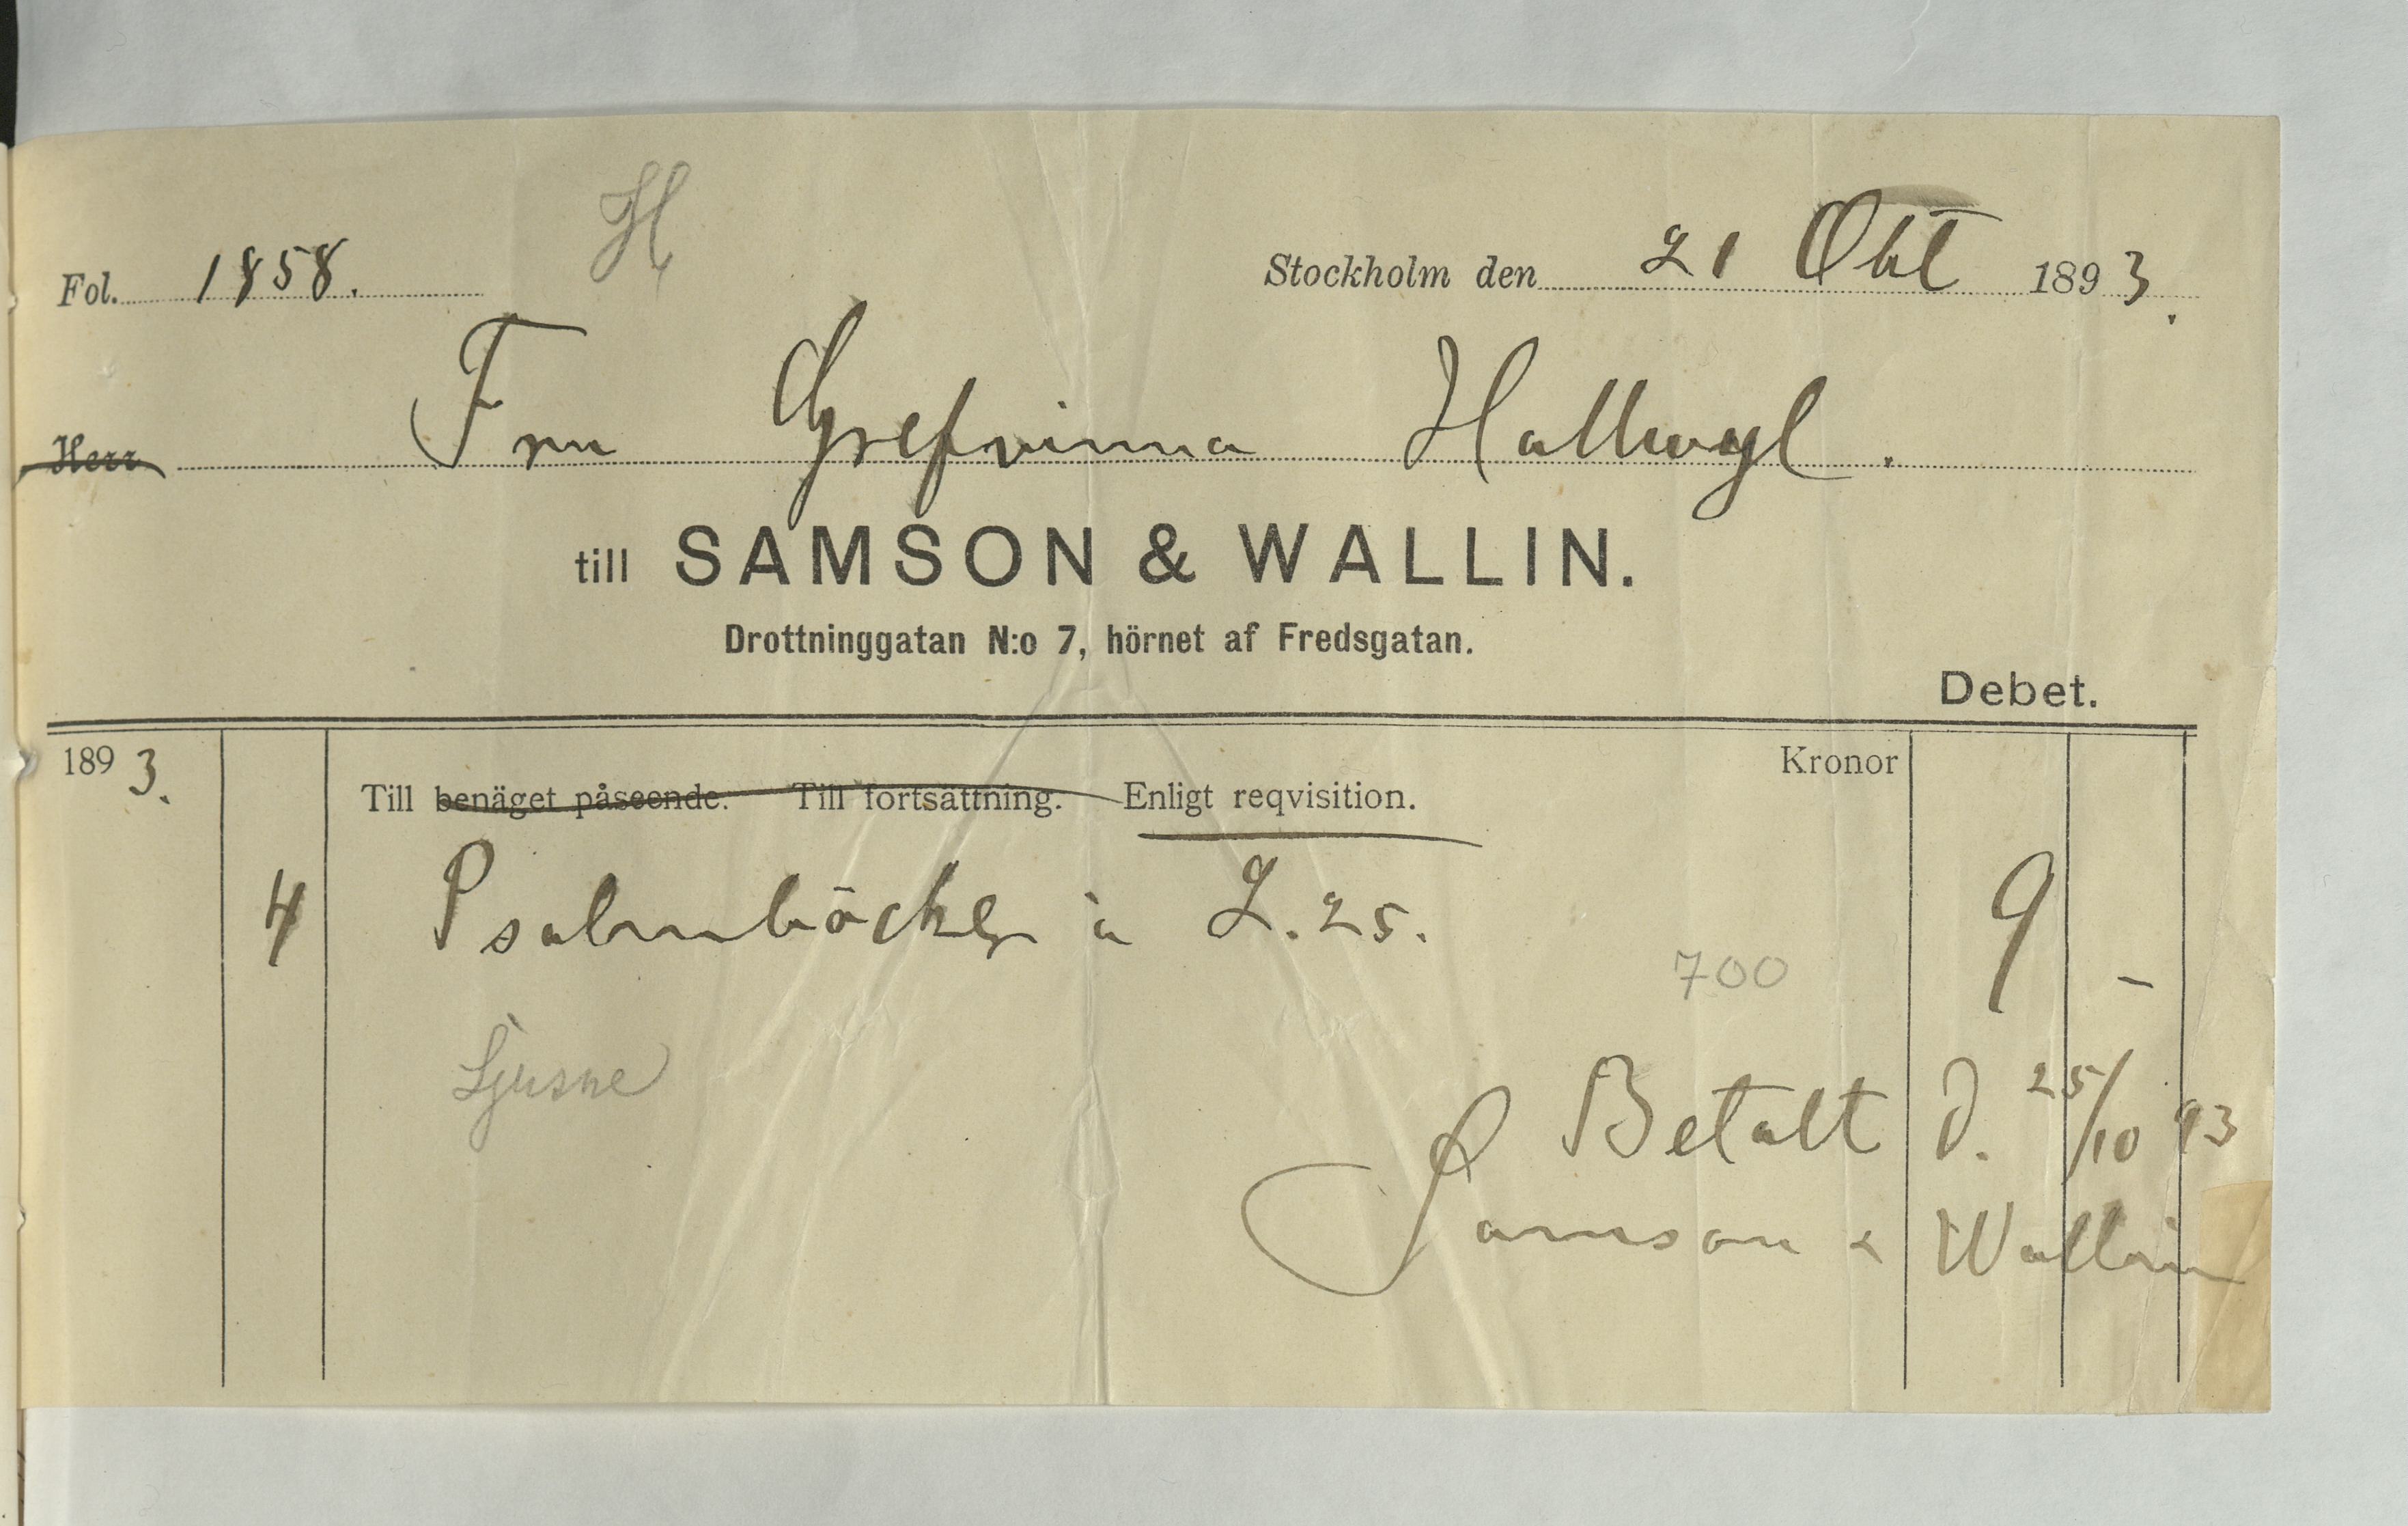 H
Fol. 1858. Stockholm den 21 Okt 1893.
Herr Fru Grefvinna Hallwyl.
till SAMSON & WALLIN.
Drottninggatan N:o 7, hörnet af Fredsgatan.
Debet.
1893. Kronor
Till benäget påseende. Till fortsättning. Enligt reqvisition.
4 Psalmböcker à 2.25. 9 -
700
Ljusne
Betalt d. 25/10 93
Samson & Wallin